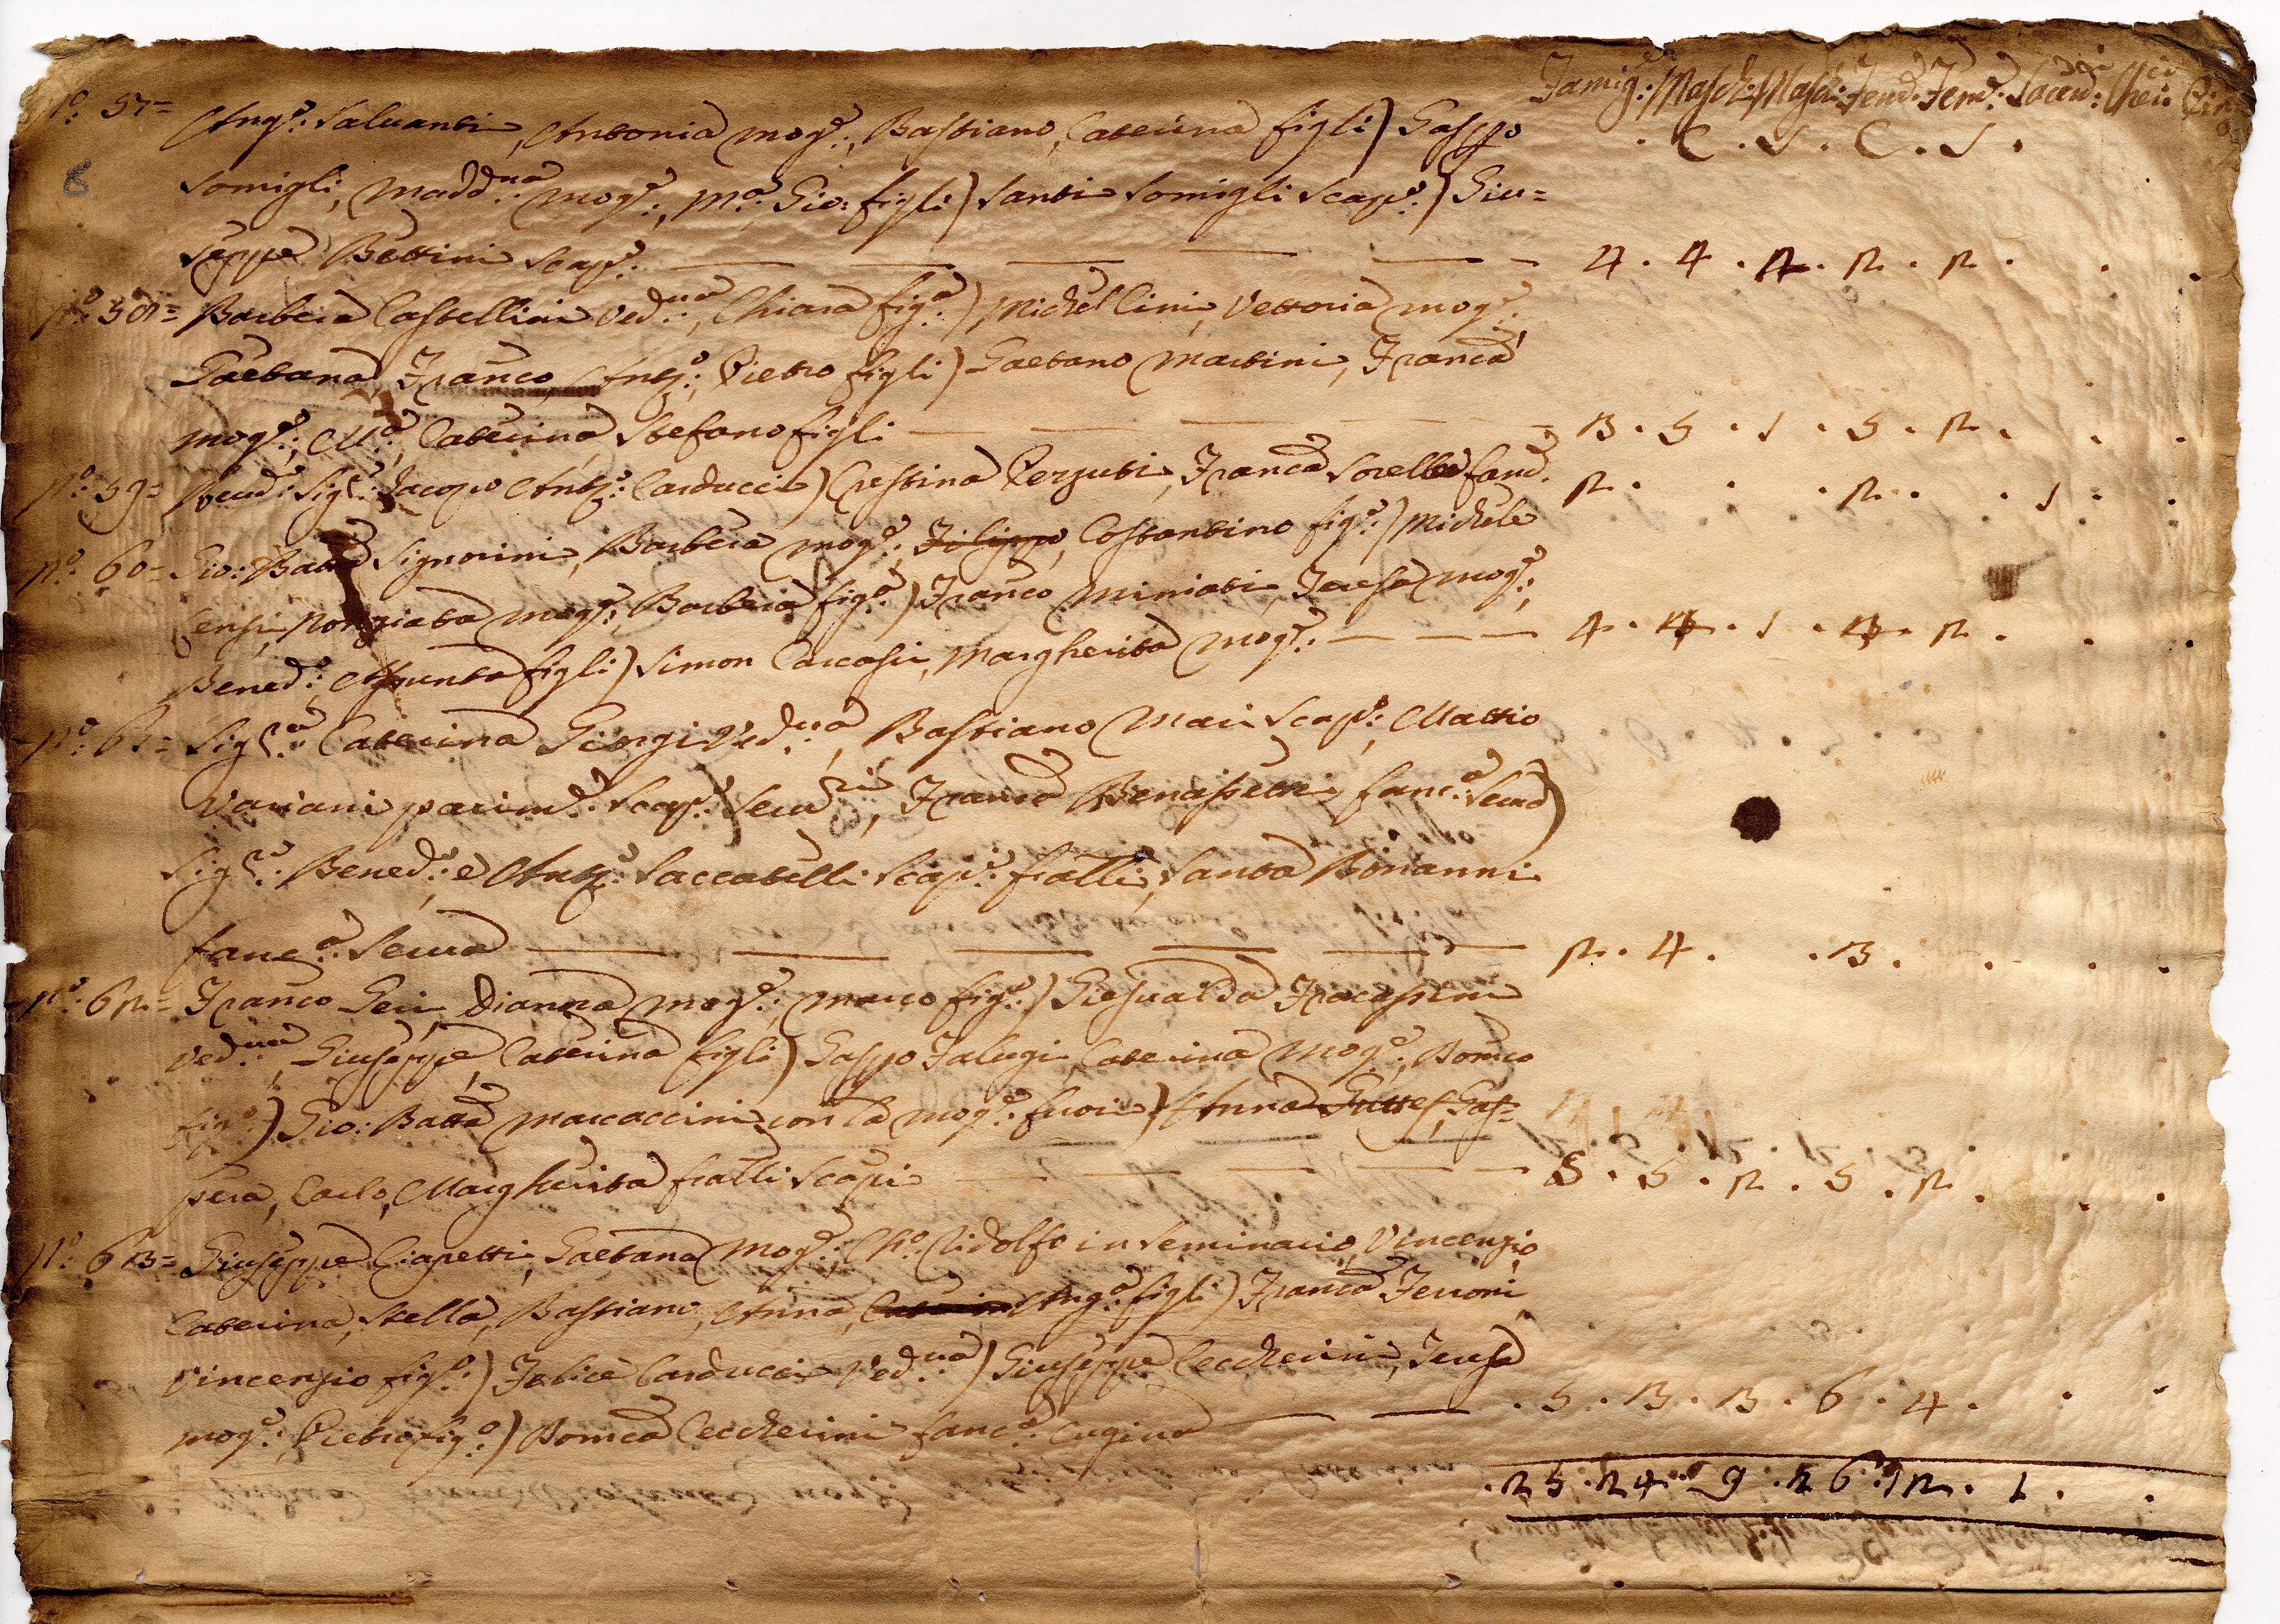 Famig: Masch: Masch: Fem: Fem: Sacerd: Cheri
. C . S . C . S .
N.° 57= Ang.°: Salvanti, Antonia mog.e:, Bastiano, Caterina figli) Gasp.o
Somigli, Madd.na: mog.e:, M.a: Gio: figli) Santi Somigli Scap.o:) Giu=
seppe Bettini Scap.o: — — — — — 4 . 4 . 2 . 2 . . .
N.° 58= Barbera Castellini Ved.ua:, Chiara fig.a:) Michel Cini, Vettoria mog.e:,
Gaetana, Franco, Ant.o:, Pietro figli) Gaetano Martini, Franca
mog.e:, M.a:, Caterina, Stefano figli — — — — 3 . 5 . 1 . 5 . 2 . . .
N.° 59= Sig.r: Jacopo Ant.o: Carducci) Crestina Perzuti, Franca Sorelle fanc. 2 . . . 2 . . 1 . .
N.° 60= Gio: Batta Signorini, Barbera mog.e:, Filippo, Costantino fig.o:) Michele
Censi, Nonziata mog.e:, Barbera fig.a) Franco Miniati, Teresa mog.e:,
Bened.o:, Assunta figli) Simon Carcasi, Margherita mog.e: — — — 4 . . 1 . . 2 . . .
N.° 61= Sig.ra: Caterina Giorgi Ved.ua:, Bastiano Mai Scap.o:, Mattio
Variani parim.e: Scap.o: Serv.ri:, Franca Benassetti fanc.a: Serva)
Sig.ri: Bened.o: e Ant.o: Saccatelli Scap.i: fratelli, Santa Bonanni
fanc.a: Serva — — — — — 2 . 4 . . 3 . . . .
N.° 62= Franco Geri, Dianora mog.e:, Marco fig.o:) Giesualda Fracassini
Ved.ua:, Giuseppe, Caterina figli) Gasp.o Falugi, Caterina mog.e:, Dom.co
fig.o:) Gio: Batta Marcaccini con la mog.e: fuori) Anna Gas=
pera, Carlo, Margherita fratelli Scapi — — — — 5 . 5 . 2 . 5 . 2 . . .
N.° 63= Giuseppe Ciapetti, Gaetana mog.e:, Ch.o: Ridolfo in Seminario, Vincenzio,
Caterina, Stella, Bastiano, Anna, Ang.o: figli) Franca Ferroni
Vincenzio fig.o:) Felice Carducci Ved.ua:) Giuseppe Ceccherini, Teresa
mog.e:, Pietro fig.o:) Dom.ca Ceccherini fanc.a: Cugina — — . 5 . 3 . 3 . 6 . 4 . . .
. 25 . 24 . 9 . 26 . 12 . 1 . .